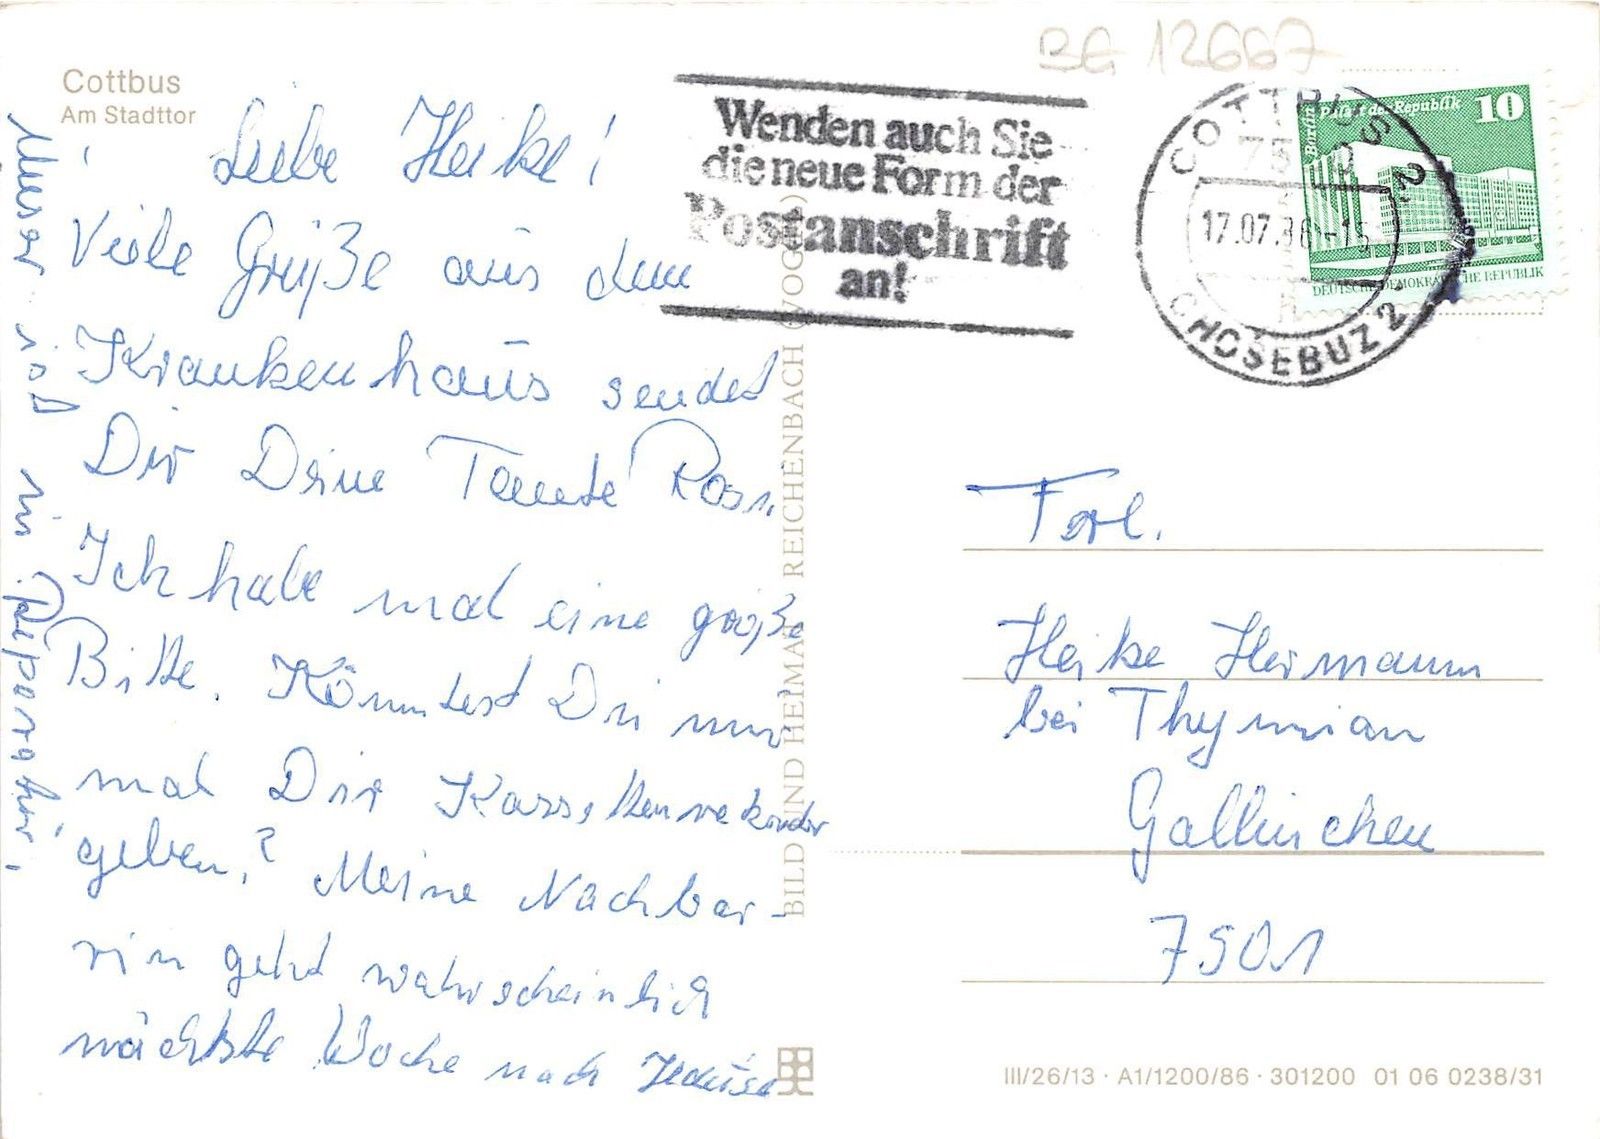 BG 12667
Cottbus
Am Stadttor
Liebe Heike!
Viele Grüße aus dem
Krankenhaus sendet
Dir Deine Tante Rosi.
Ich habe mal eine große
Bitte. Könntest Du mir
mal Dir Kassettenrekorder
geben? Meine Nachbar-
rin geht wahrscheinlich
nächste Woche nach Hause
Unser ist in Reparatur.
BILD UND HEIMAT REICHENBACH (VOGTL)
Wenden auch Sie
die neue Form der
Postanschrift
an!
COTTBUS 2
17.07.86-15
CHOSEBUZ 2
Berlin-Palast der Republik 10
DEUTSCHE DEMOKRATISCHE REPUBLIK
Frl.
Heike Hermann
bei Thymian
Gallinchen
7501
III/26/13 · A1/1200/86 · 301200 01 06 0238/31